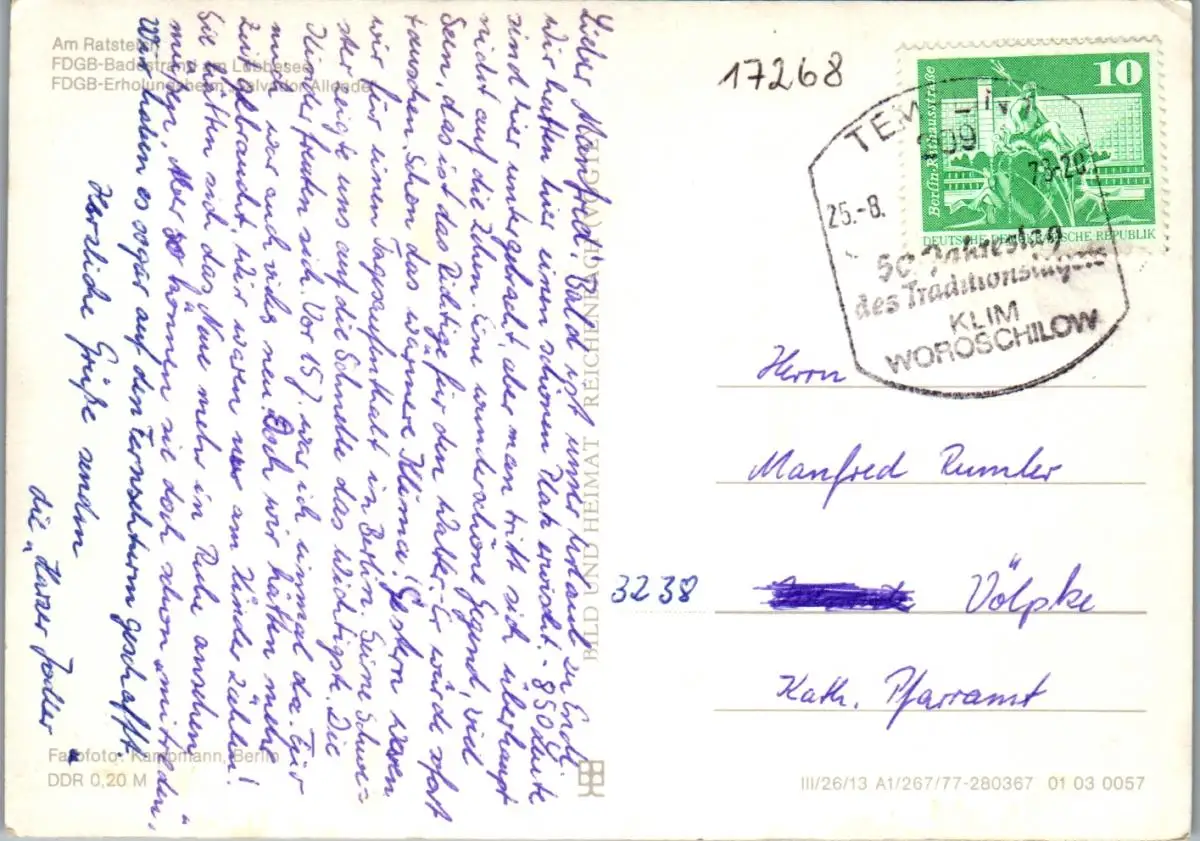 Am Ratsteich
FDGB-Badestrand am Lübbesee
FDGB-Erholungsheim "Salvador Allende"
Lieber Manfred! Bald ist unser Urlaub zu Ende.
Wir hatten hier einen schönen Platz erwischt. - 850 Leute
sind hier untergebracht, aber man tritt sich überhaupt
nicht auf die Zehen. Eine wunderschöne Gegend, viel
Seen, das ist das Richtige für den Walter. Er würde sofort
tauschen. Schon das wärmere Klima! Gestern waren
wir für einen Tagesaufenthalt in Berlin. Seine Schwe=
ster zeigte uns auf die Schnelle das Wichtigste. Die
Kinder freuten sich. Vor 15 J. war ich einmal da. Für
mich war auch vieles neu. Doch wir hätten mehr
Zeit gebraucht. Wir waren nur am Kinder zählen!
Sie hätten sich das Neue mehr in Ruhe ansehen
müssen. Aber so können sie doch schon "mitreden".
Wir haben es sogar auf den Fernsehturm geschafft.
Herzliche Grüße senden
die "Harzer Jodler"
Farbfoto: Kampmann, Berlin
DDR 0,20 M
BILD UND HEIMAT REICHENBACH (VOGTL)
17268
10
Berlin-Rathausstraße
DEUTSCHE DEMOKRATISCHE REPUBLIK
209
25.-8. 78-20
50. Jahrestag
des Traditionsflugzeugs
KLIM
WOROSCHILOW
Herrn
Manfred Rumler
3238 Völpke
Kath. Pfarramt
III/26/13 A1/267/77-280367 01 03 0057